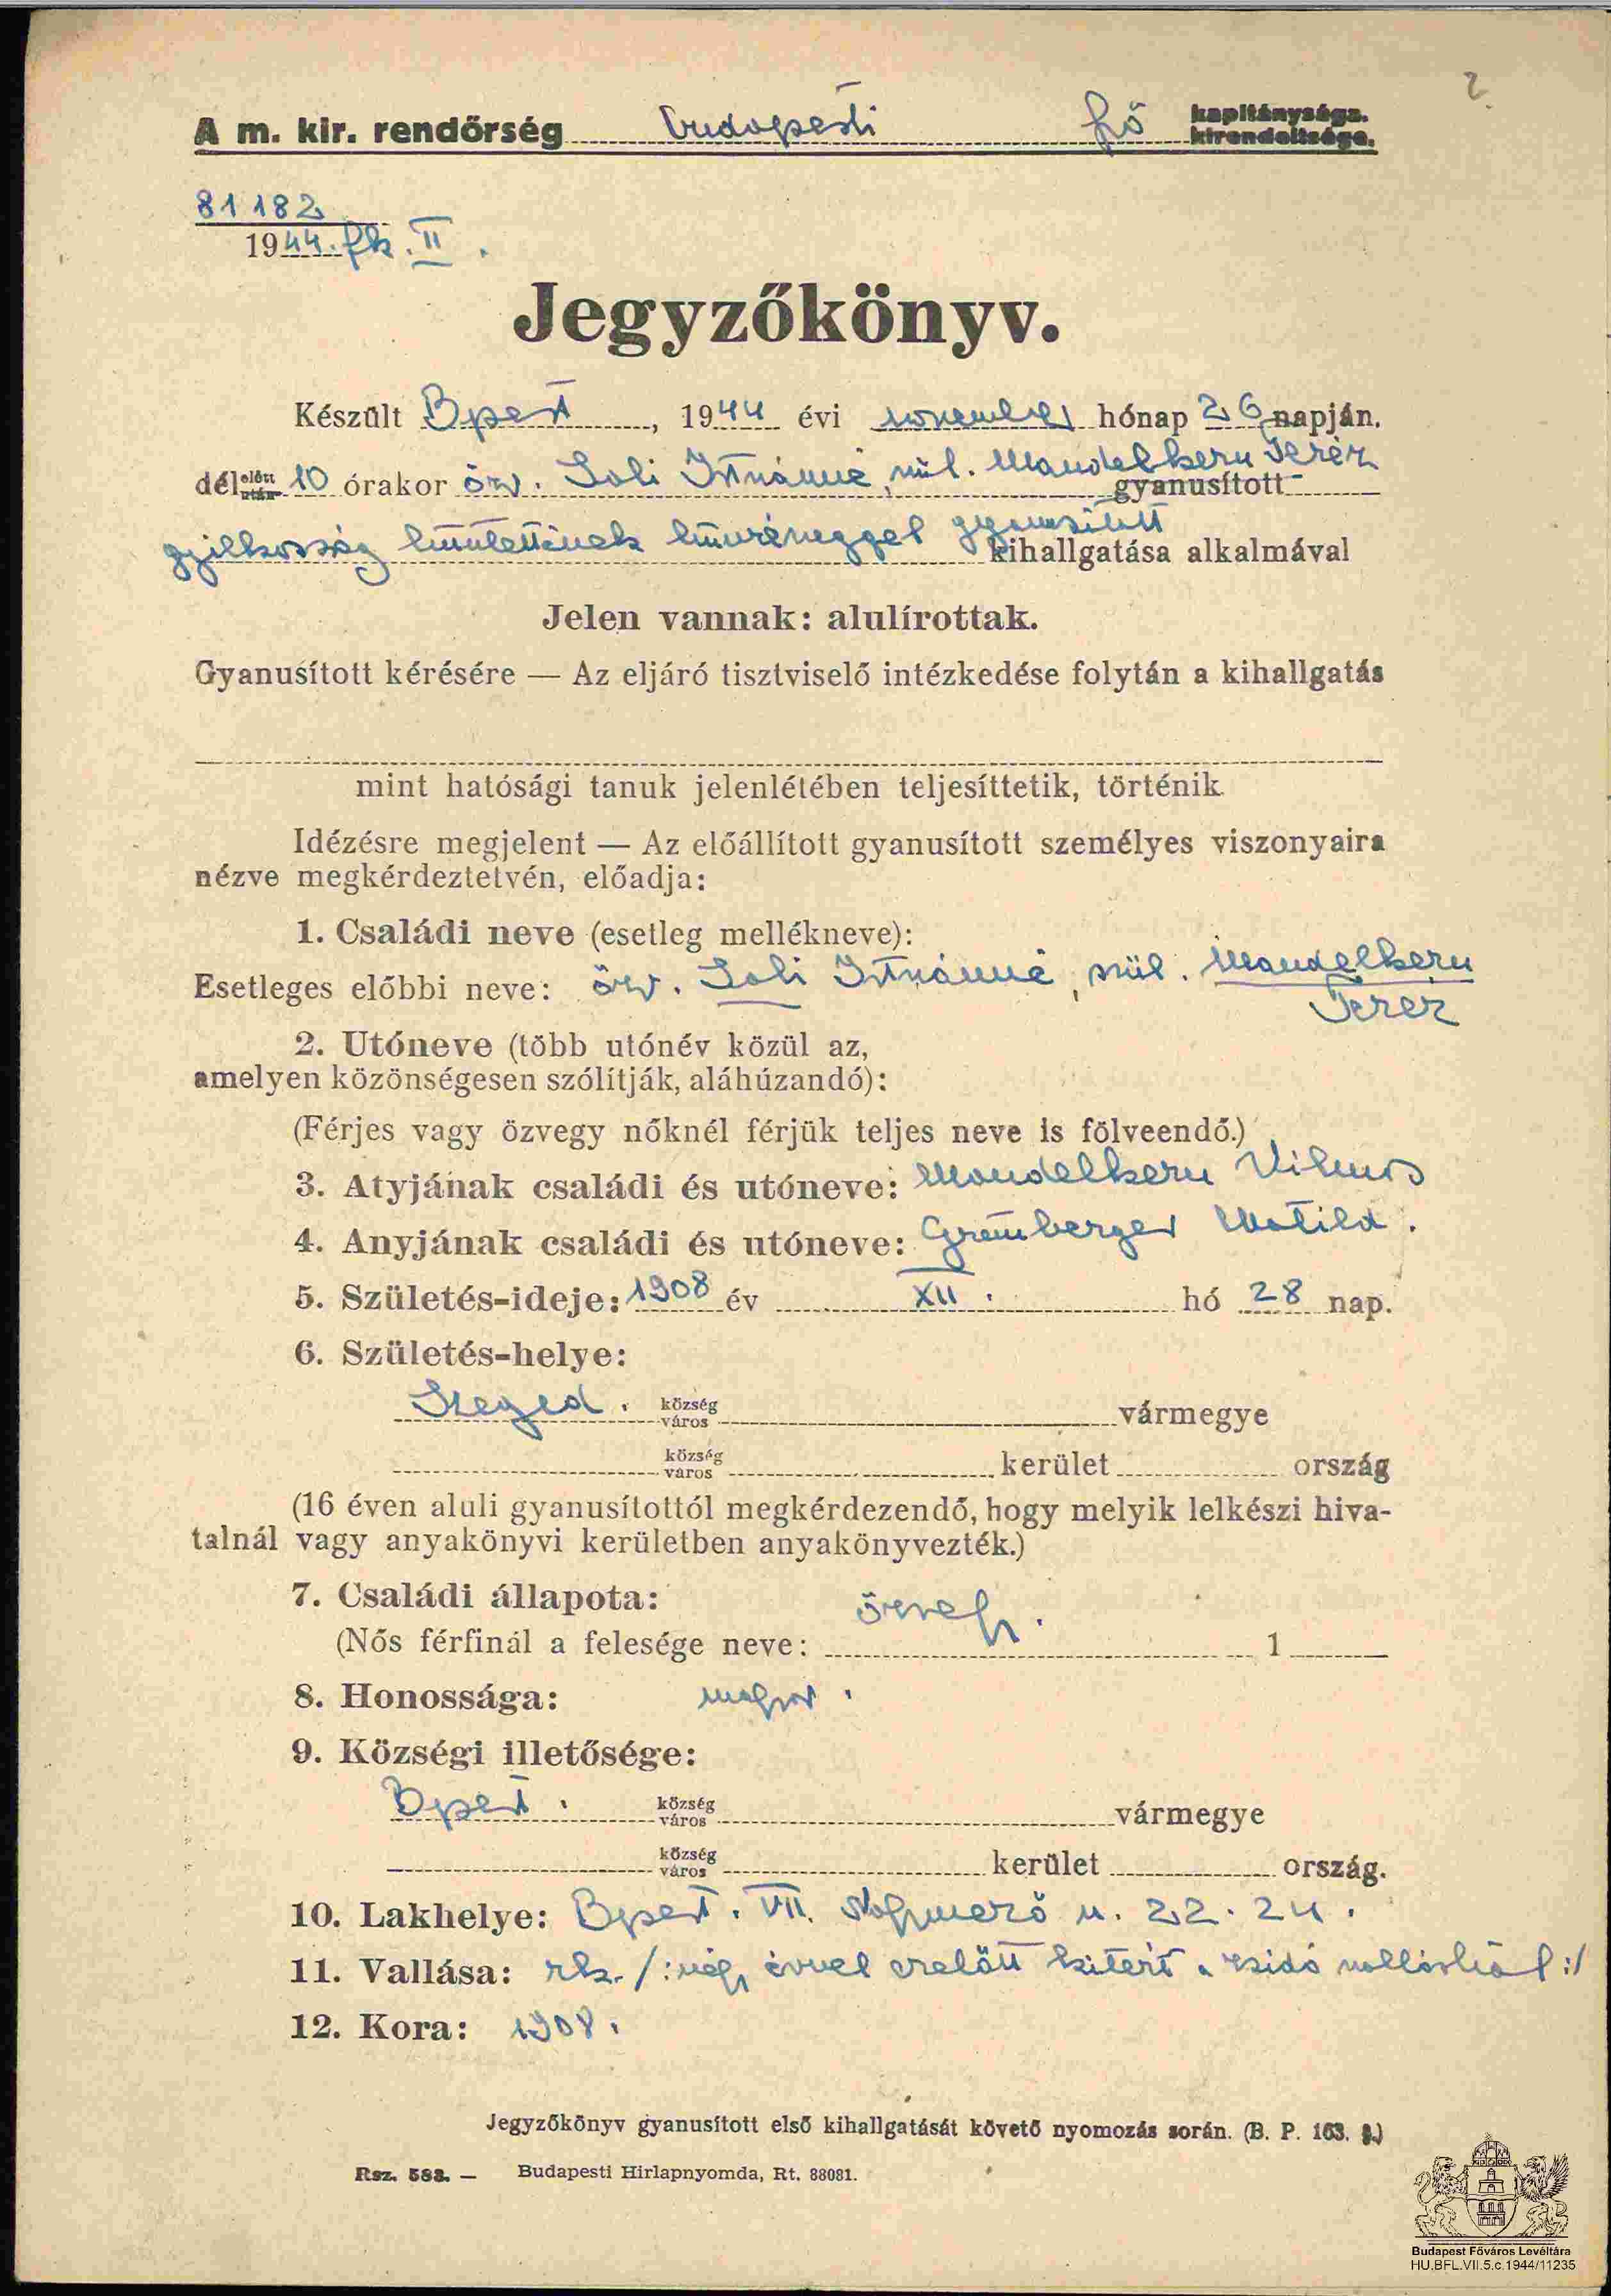 2
A m. kir. rendőrség budapesti fő kapitánysága.
kirendeltsége.
81182
1944. fk. II.
Jegyzőkönyv.
Készült Bpest, 1944 évi november hónap 26 napján.
dél előtt után 10 órakor özv. Soli Istvánné, szül. Mandelkern Teréz gyanusított
gyilkosság büntettének bűnrészeggel gyanusított kihallgatása alkalmával
Jelen vannak: alulírottak.
Gyanusított kérésére — Az eljáró tisztviselő intézkedése folytán a kihallgatás
mint hatósági tanuk jelenlétében teljesíttetik, történik
Idézésre megjelent — Az előállított gyanusított személyes viszonyaira
nézve megkérdeztetvén, előadja:
1. Családi neve (esetleg mellékneve):
Esetleges előbbi neve: özv. Soli Istvánné, szül. Mandelkern
Teréz
2. Utóneve (több utónév közül az,
amelyen közönségesen szólítják, aláhúzandó):
(Férjes vagy özvegy nőknél férjük teljes neve is fölveendő.)
3. Atyjának családi és utóneve: Mandelkern Vilmos
4. Anyjának családi és utóneve: Grünberger Matild.
5. Születés-ideje: 1908 év XII. hó 28 nap.
6. Születés-helye:
Szeged. község város vármegye
község város kerület ország
(16 éven aluli gyanusítottól megkérdezendő, hogy melyik lelkészi hiva-
talnál vagy anyakönyvi kerületben anyakönyvezték.)
7. Családi állapota: özvegy.
(Nős férfinál a felesége neve: 1
8. Honossága: magyar.
9. Községi illetősége:
Bpest. község város vármegye
község város kerület ország.
10. Lakhelye: Bpest. VII. u. 22. 24.
11. Vallása: rk. /: négy évvel ezelőtt kitért a zsidó vallásból :/
12. Kora: 1908.
Jegyzőkönyv gyanusított első kihallgatását követő nyomozás során. (B. P. 163. §.)
Rsz. 583. — Budapesti Hirlapnyomda, Rt. 88081.
Budapest Főváros Levéltára
HU.BFL.VII.5.c.1944/11235